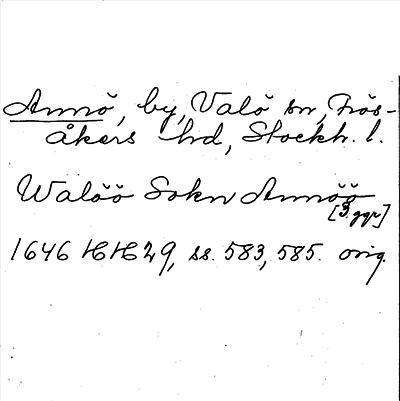 Annö, by, Valö sn, Frös-
åkers hd, Stockh. l.
Walöö Sokn Annöö
[3 ggr]
1646 HH 29, ss. 583, 585. orig.